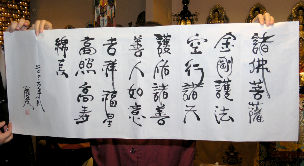 諸佛菩薩
金剛護法
空行諸天
護佑諸善
善人如意
吉祥福星
高照高壽
綿長